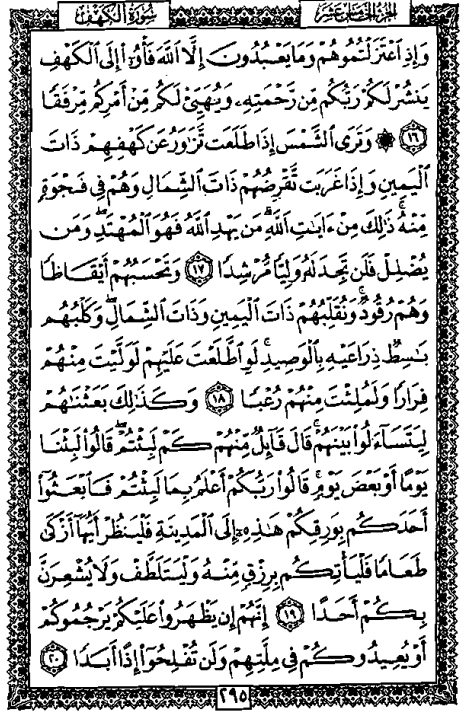 سُورَةُ الكَهْفِ
الجزء الخامس عشر
وَإِذِ ٱعْتَزَلْتُمُوهُمْ وَمَا يَعْبُدُونَ إِلَّا ٱللَّهَ فَأْوُۥٓا۟ إِلَى ٱلْكَهْفِ
يَنشُرْ لَكُمْ رَبُّكُم مِّن رَّحْمَتِهِۦ وَيُهَيِّئْ لَكُم مِّنْ أَمْرِكُم مِّرْفَقًا
﴿١٦﴾ ۞ وَتَرَى ٱلشَّمْسَ إِذَا طَلَعَت تَّزَٰوَرُ عَن كَهْفِهِمْ ذَاتَ
ٱلْيَمِينِ وَإِذَا غَرَبَت تَّقْرِضُهُمْ ذَاتَ ٱلشِّمَالِ وَهُمْ فِى فَجْوَةٍ
مِّنْهُ ۚ ذَٰلِكَ مِنْ ءَايَٰتِ ٱللَّهِ ۗ مَن يَهْدِ ٱللَّهُ فَهُوَ ٱلْمُهْتَدِ ۖ وَمَن
يُضْلِلْ فَلَن تَجِدَ لَهُۥ وَلِيًّا مُّرْشِدًا ﴿١٧﴾ وَتَحْسَبُهُمْ أَيْقَاظًا
وَهُمْ رُقُودٌ ۚ وَنُقَلِّبُهُمْ ذَاتَ ٱلْيَمِينِ وَذَاتَ ٱلشِّمَالِ ۖ وَكَلْبُهُم
بَٰسِطٌ ذِرَاعَيْهِ بِٱلْوَصِيدِ ۚ لَوِ ٱطَّلَعْتَ عَلَيْهِمْ لَوَلَّيْتَ مِنْهُمْ
فِرَارًا وَلَمُلِئْتَ مِنْهُمْ رُعْبًا ﴿١٨﴾ وَكَذَٰلِكَ بَعَثْنَٰهُمْ
لِيَتَسَآءَلُوا۟ بَيْنَهُمْ ۚ قَالَ قَآئِلٌ مِّنْهُمْ كَمْ لَبِثْتُمْ ۖ قَالُوا۟ لَبِثْنَا
يَوْمًا أَوْ بَعْضَ يَوْمٍ ۚ قَالُوا۟ رَبُّكُمْ أَعْلَمُ بِمَا لَبِثْتُمْ فَٱبْعَثُوٓا۟
أَحَدَكُم بِوَرِقِكُمْ هَٰذِهِۦٓ إِلَى ٱلْمَدِينَةِ فَلْيَنظُرْ أَيُّهَآ أَزْكَىٰ
طَعَامًا فَلْيَأْتِكُم بِرِزْقٍ مِّنْهُ وَلْيَتَلَطَّفْ وَلَا يُشْعِرَنَّ
بِكُمْ أَحَدًا ﴿١٩﴾ إِنَّهُمْ إِن يَظْهَرُوا۟ عَلَيْكُمْ يَرْجُمُوكُمْ
أَوْ يُعِيدُوكُمْ فِى مِلَّتِهِمْ وَلَن تُفْلِحُوٓا۟ إِذًا أَبَدًا ﴿٢٠﴾
٢٩٥